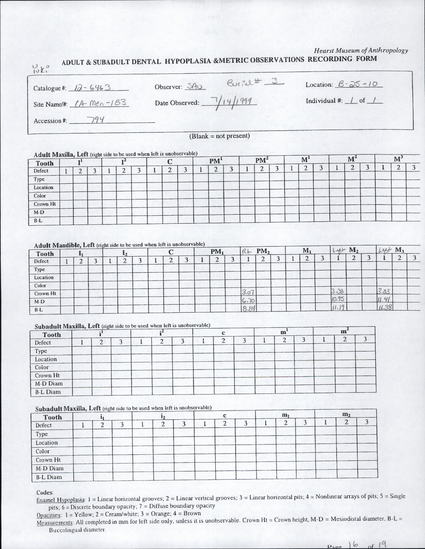 Hearst Museum of Anthropology
ADULT & SUBADULT DENTAL HYPOPLASIA &METRIC OBSERVATIONS RECORDING FORM
Catalogue #: 12-6463 Observer: Burial # 3 Location: B-25-10
Site Name/#: CA-Mrn-153 Date Observed: 7/14/1999 Individual #: 1 of 1
Accession #: 794
(Blank = not present)
Adult Maxilla, Left (right side to be used when left is unobservable)
Tooth I¹ I² C PM¹ PM² M¹ M² M³
Defect 1 2 3 1 2 3 1 2 3 1 2 3 1 2 3 1 2 3 1 2 3 1 2 3
Type
Location
Color
Crown Ht
M-D
B-L
Adult Mandible, Left (right side to be used when left is unobservable)
Tooth I₁ I₂ C PM₁ PM₂ M₁ Left M₂ Left M₃
Defect 1 2 3 1 2 3 1 2 3 1 2 3 1 2 3 1 2 3 1 2 3 1 2 3
Type
Location
Color
Crown Ht
M-D
B-L
Subadult Maxilla, Left (right side to be used when left is unobservable)
Tooth i¹ i² c m¹ m²
Defect 1 2 3 1 2 3 1 2 3 1 2 3 1 2 3
Type
Location
Color
Crown Ht
M-D Diam
B-L Diam
Subadult Maxilla, Left (right side to be used when left is unobservable)
Tooth i₁ i₂ c m₁ m₂
Defect 1 2 3 1 2 3 1 2 3 1 2 3 1 2 3
Type
Location
Color
Crown Ht
M-D Diam
B-L Diam
Codes
Enamel Hypoplasia: 1 = Linear horizontal grooves; 2 = Linear vertical grooves; 3 = Linear horizontal pits; 4 = Nonlinear arrays of pits; 5 = Single
pits; 6 = Discrete boundary opacity; 7 = Diffuse boundary opacity
Opacities: 1 = Yellow; 2 = Cream/white; 3 = Orange; 4 = Brown
Measurements: All completed in mm for left side only, unless it is unobservable. Crown Ht = Crown height, M-D = Mesiodistal diameter, B-L =
Buccolingual diameter
Page 16 of 19